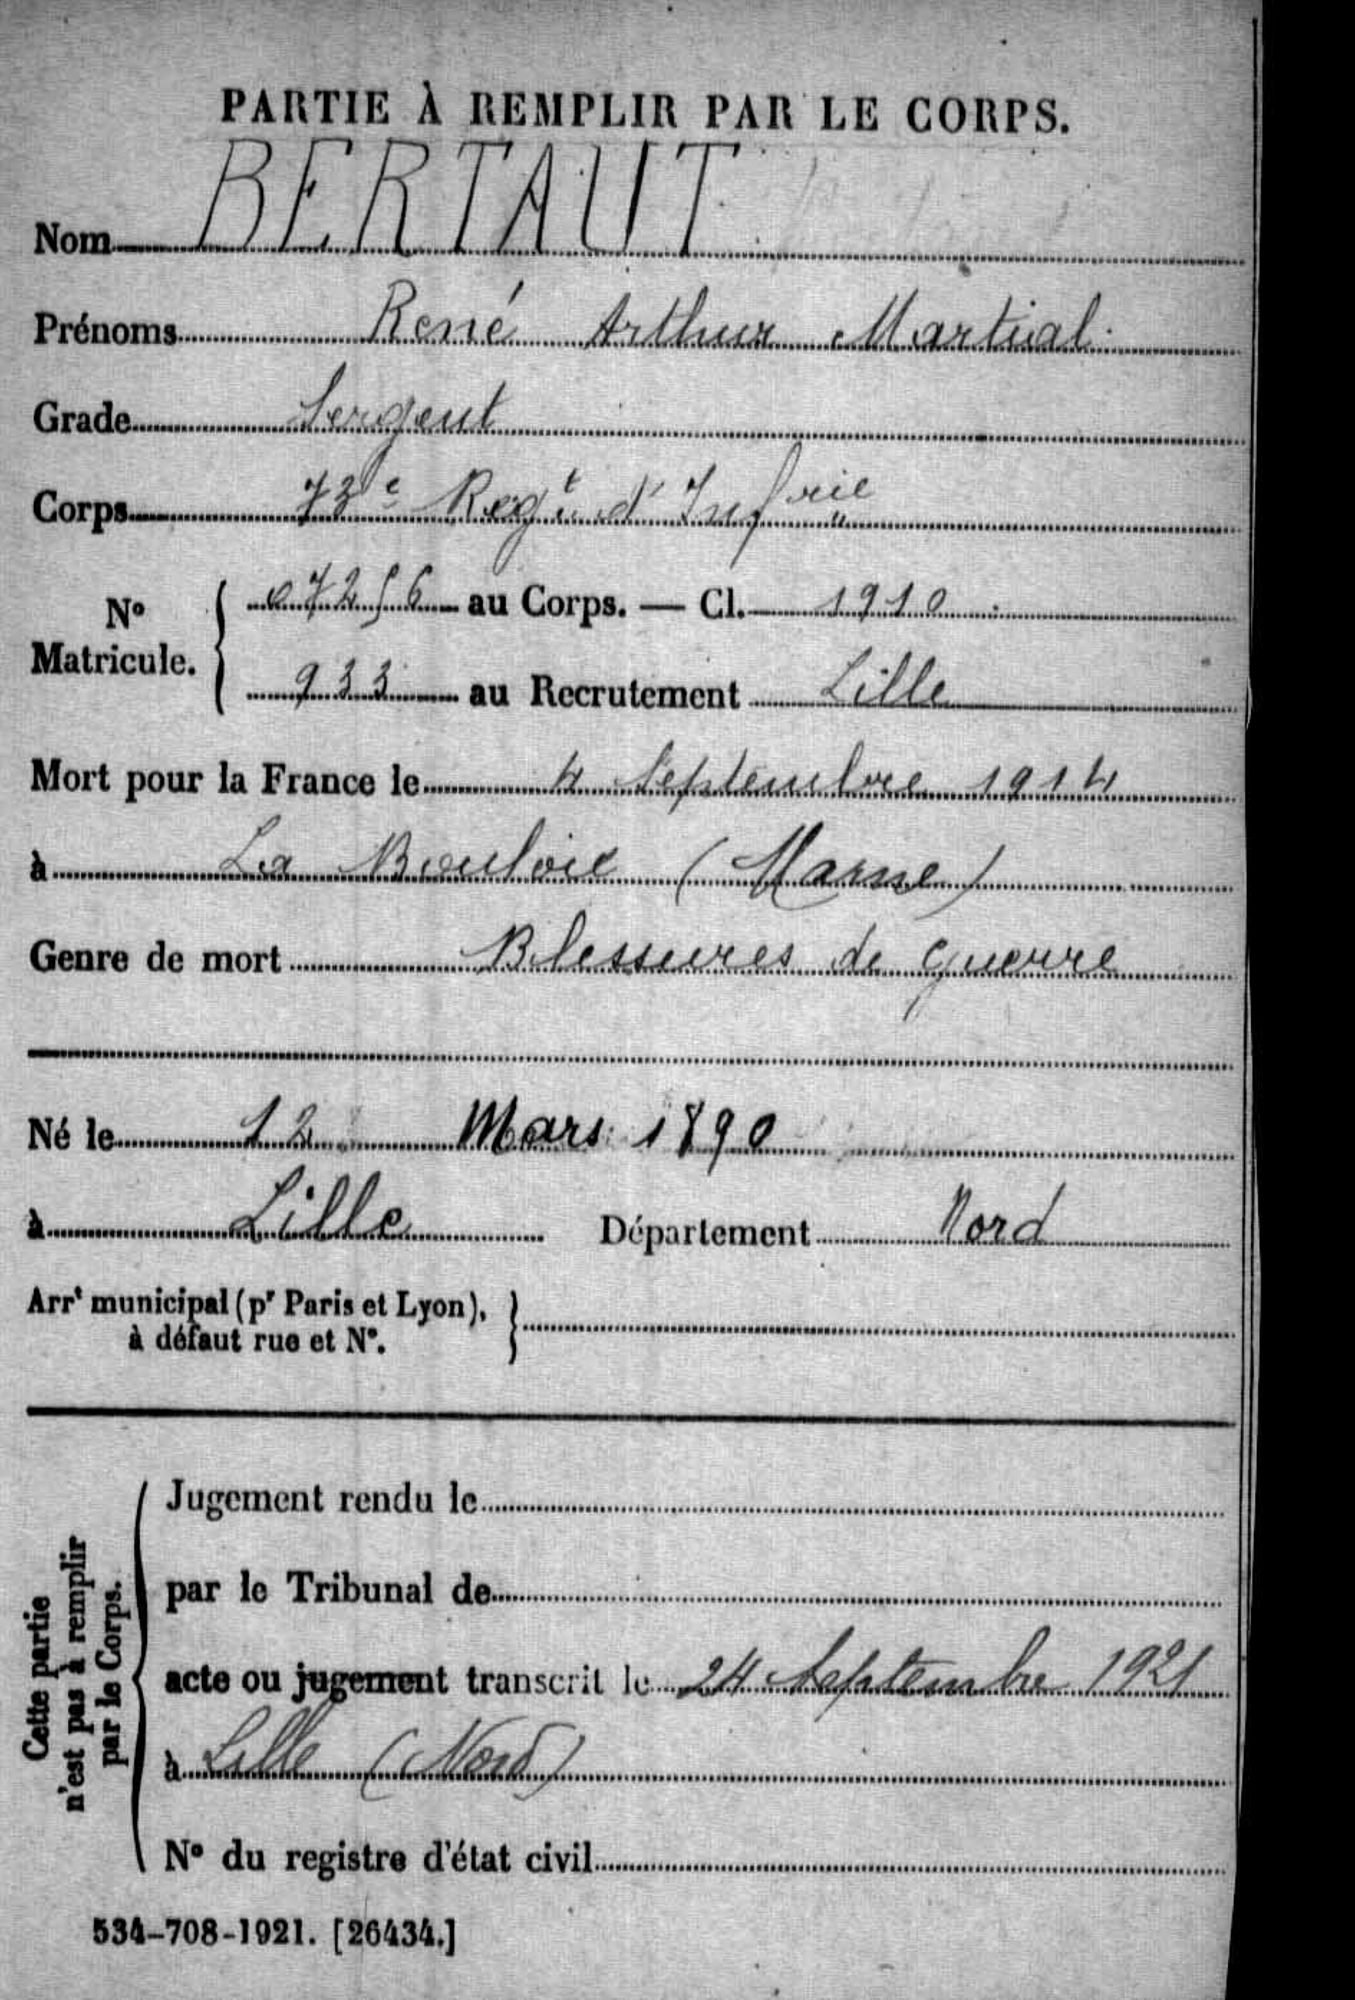 PARTIE À REMPLIR PAR LE CORPS.
Nom BERTAUT
Prénoms René Arthur Martial
Grade Sergent
Corps 73e Regt d'Infrie
No Matricule. { 07256 au Corps. — Cl. 1910
933 au Recrutement Lille
Mort pour la France le 4 Septembre 1914
à La Bouloie (Marne)
Genre de mort Blessures de guerre
Né le 12 Mars 1890
à Lille Département Nord
Arrt municipal (pr Paris et Lyon),
à défaut rue et No. }
Cette partie
n'est pas à remplir
par le Corps.
Jugement rendu le
par le Tribunal de
acte ou jugement transcrit le 24 Septembre 1921
à Lille (Nord)
No du registre d'état civil
534-708-1921. [26434.]